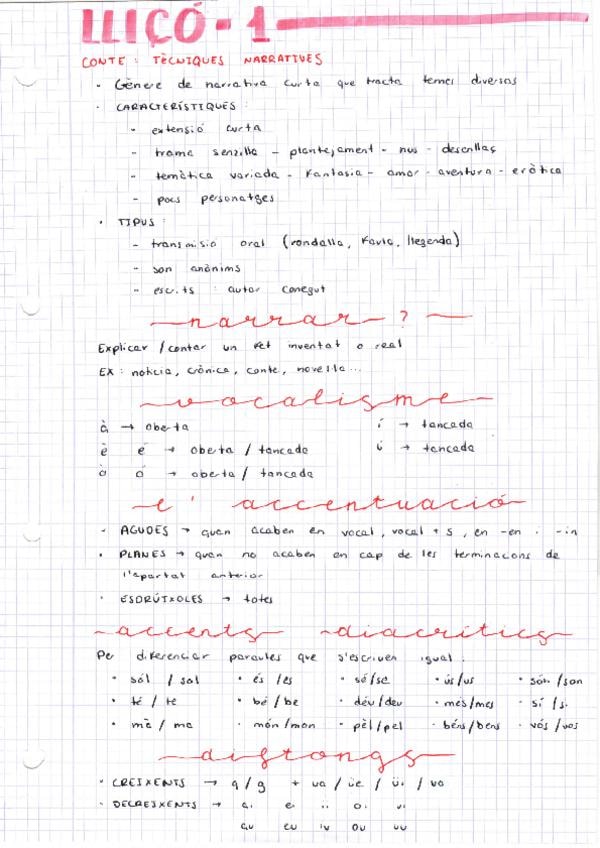 LLIÇÓ - 1
CONTE : TÈCNIQUES NARRATIVES
· Gènere de narrativa curta que tracta temes diversos
· CARACTERÍSTIQUES :
- extensió curta
- trama senzilla - plantejament - nus - desenllaç
- temàtica variada - fantasia - amor - aventura - eròtica
- pocs personatges
· TIPUS :
- transmisio oral (rondalla, faula, llegenda)
- son anònims
- escrits : autor conegut
narrar ?
Explicar / contar un fet inventat o real
EX : noticia, crònica, conte, novel·la...
vocalisme
à → oberta í → tancada
è é → oberta / tancada ú → tancada
ò ó → oberta / tancada
l' accentuació
- AGUDES → quan acaben en vocal, vocal + s, en -en i -in
· PLANES → quan no acaben en cap de les terminacions de
l'apartat anterior
· ESDRÚIXOLES → totes
accents diacrítics
Per diferenciar paraules que s'escriuen igual :
· sòl / sol · és / es · sé/se · ús/us · són / son
· té / te · bé / be · déu / deu · més/mes · sí / si
· mà / ma · món / mon · pèl / pel · béns / bens · vós / vos
diftongs
· CREIXENTS → q / g + ua / üe / üi / uo
· DECREIXENTS → ai ei ii oi ui
au eu iu ou uu